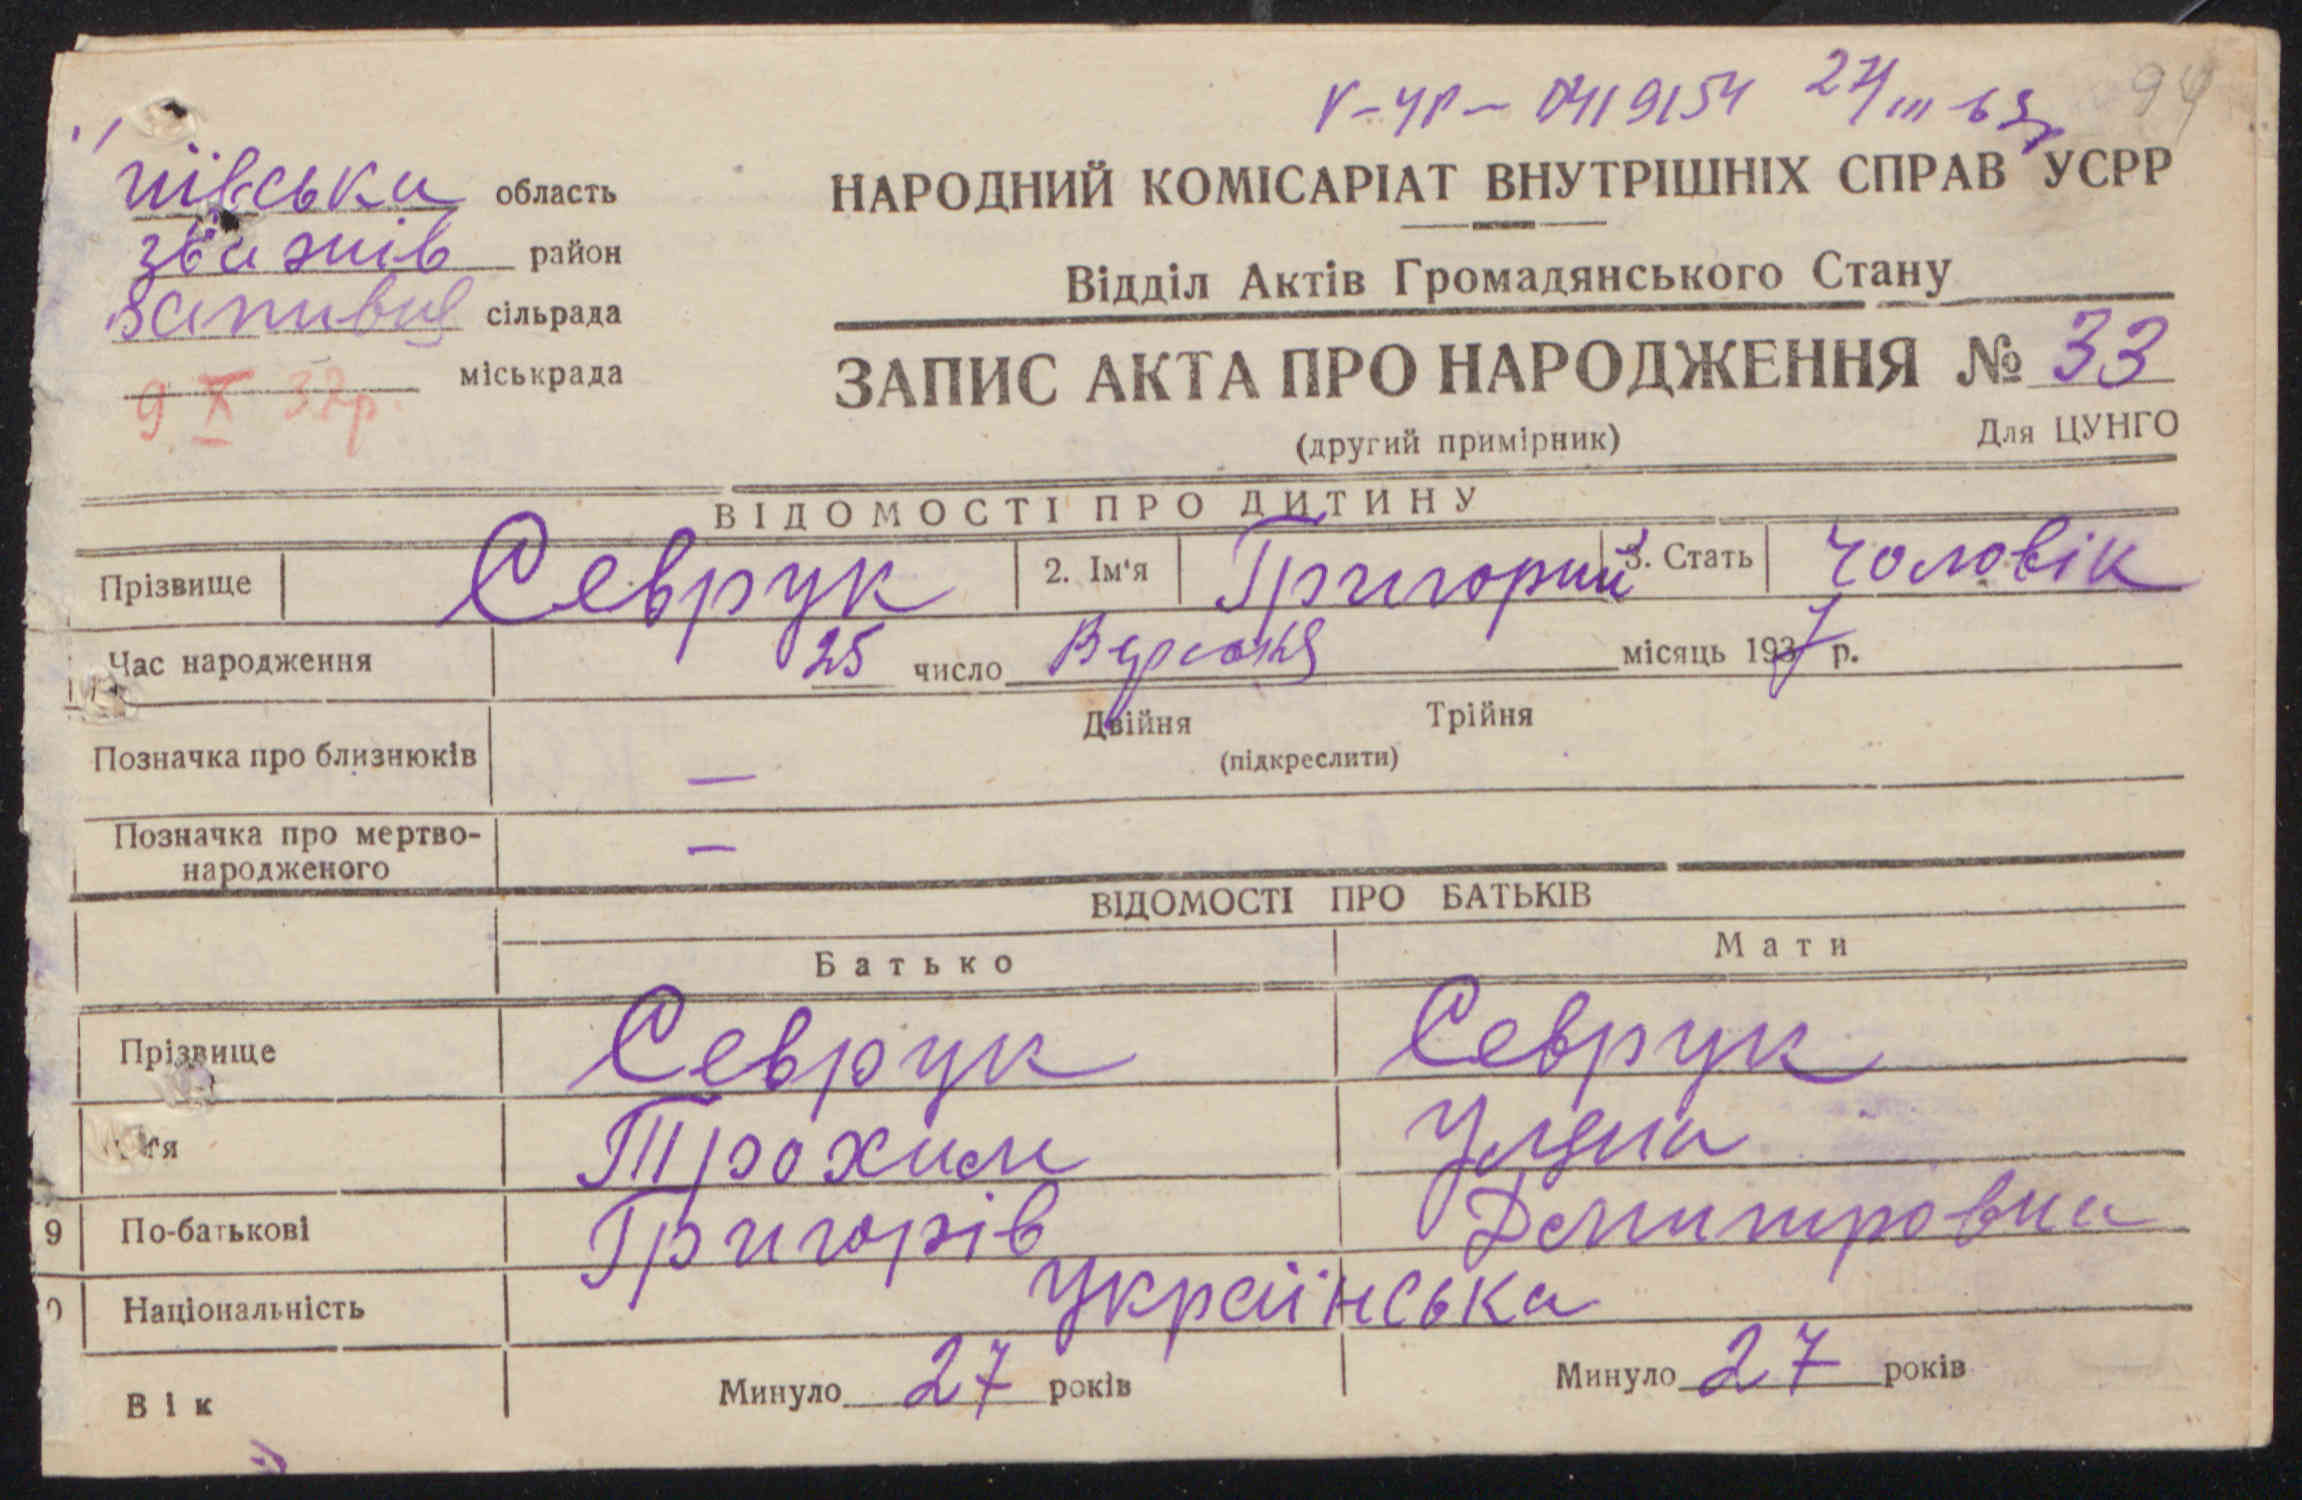 V-УР- 0419154 27/III-63р 94
НАРОДНИЙ КОМІСАРІАТ ВНУТРІШНІХ СПРАВ УСРР
Відділ Актів Громадянського Стану
ївська область
район
сільрада
міськрада
9 X 32р.
ЗАПИС АКТА ПРО НАРОДЖЕННЯ № 33
(другий примірник) Для ЦУНГО
ВІДОМОСТІ ПРО ДИТИНУ
Прізвище Севрук 2. Ім'я Григорий 3. Стать чоловік
Час народження 25 число Вересня місяць 1937 р.
Двійня Трійня
Позначка про близнюків — (підкреслити)
Позначка про мертво- —
народженого
ВІДОМОСТІ ПРО БАТЬКІВ
Батько Мати
Прізвище Севрук Севрук
'я Трохим Уляна
9 По-батькові Григорів Демитровна
0 Національність Українська
Вік Минуло 27 років Минуло 27 років